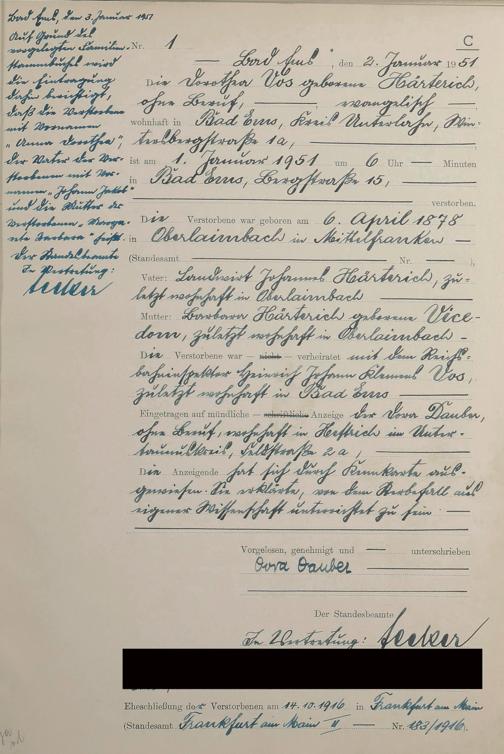 Bad Ems, den 3. Januar 1951
Auf Grund des
vorgelegten Familien-
stammbuchs wird
die Eintragung
dahin berichtigt,
daß die Verstorbene
mit Vornamen
"Anna Dorothea",
der Vater der Ver-
storbenen mit Vor-
namen "Johann Jakob"
und die Mutter der
Verstorbenen "Marga-
rete Barbara" heißt.
Der Standesbeamte
In Vertretung:
C
Nr. 1
Bad Ems, den 2. Januar 1951
Die Dorothea Vos geborene Härterich,
ohne Beruf, — evangelisch —
wohnhaft in Bad Ems, Kreis Unterlahn, Win-
tersbergstraße 1a, —
ist am 1. Januar 1951 um 6 Uhr — Minuten
in Bad Ems, Bergstraße 15, —
verstorben.
Die Verstorbene war geboren am 6. April 1878
in Oberlaimbach in Mittelfranken —
(Standesamt — Nr. —),
Vater: Landwirt Johannes Härterich, zu-
letzt wohnhaft in Oberlaimbach —
Mutter: Barbara Härterich geborene Vice-
dom, zuletzt wohnhaft in Oberlaimbach -
Die Verstorbene war — nicht — verheiratet mit dem Reichs-
bahninspektor Heinrich Johann Klemens Vos,
zuletzt wohnhaft in Bad Ems —
Eingetragen auf mündliche — schriftliche Anzeige der Dora Dauber,
ohne Beruf, wohnhaft in Heftrich im Unter-
taunuskreis, Feldstraße 2a, —
Die Anzeigende hat sich durch Kennkarte aus-
gewiesen. Sie erklärte, von dem Sterbefall aus
eigener Wissenschaft unterrichtet zu sein —
Vorgelesen, genehmigt und — unterschrieben
Dora Dauber
Der Standesbeamte
In Vertretung:
Eheschließung der Verstorbenen am 14.10.1916 in Frankfurt am Main
(Standesamt Frankfurt am Main II — Nr. 183/1916).